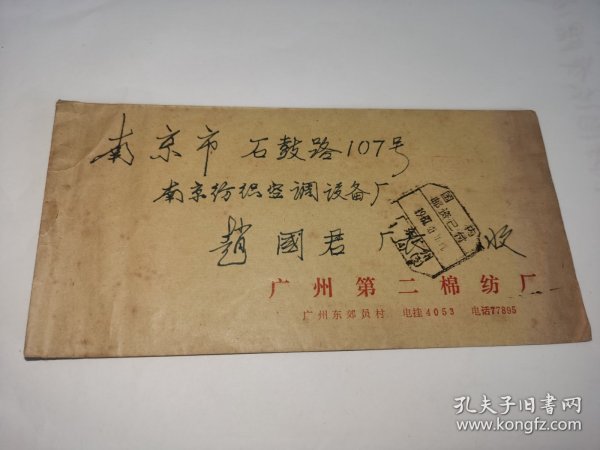 南京市 石鼓路107号
南京纺织空调设备厂
趙國君 厂长 收
國内
邮资已付
广州
广州第二棉纺厂
广州东郊员村 电挂4053 电话77895
孔夫子旧书网
www.kongfz.com